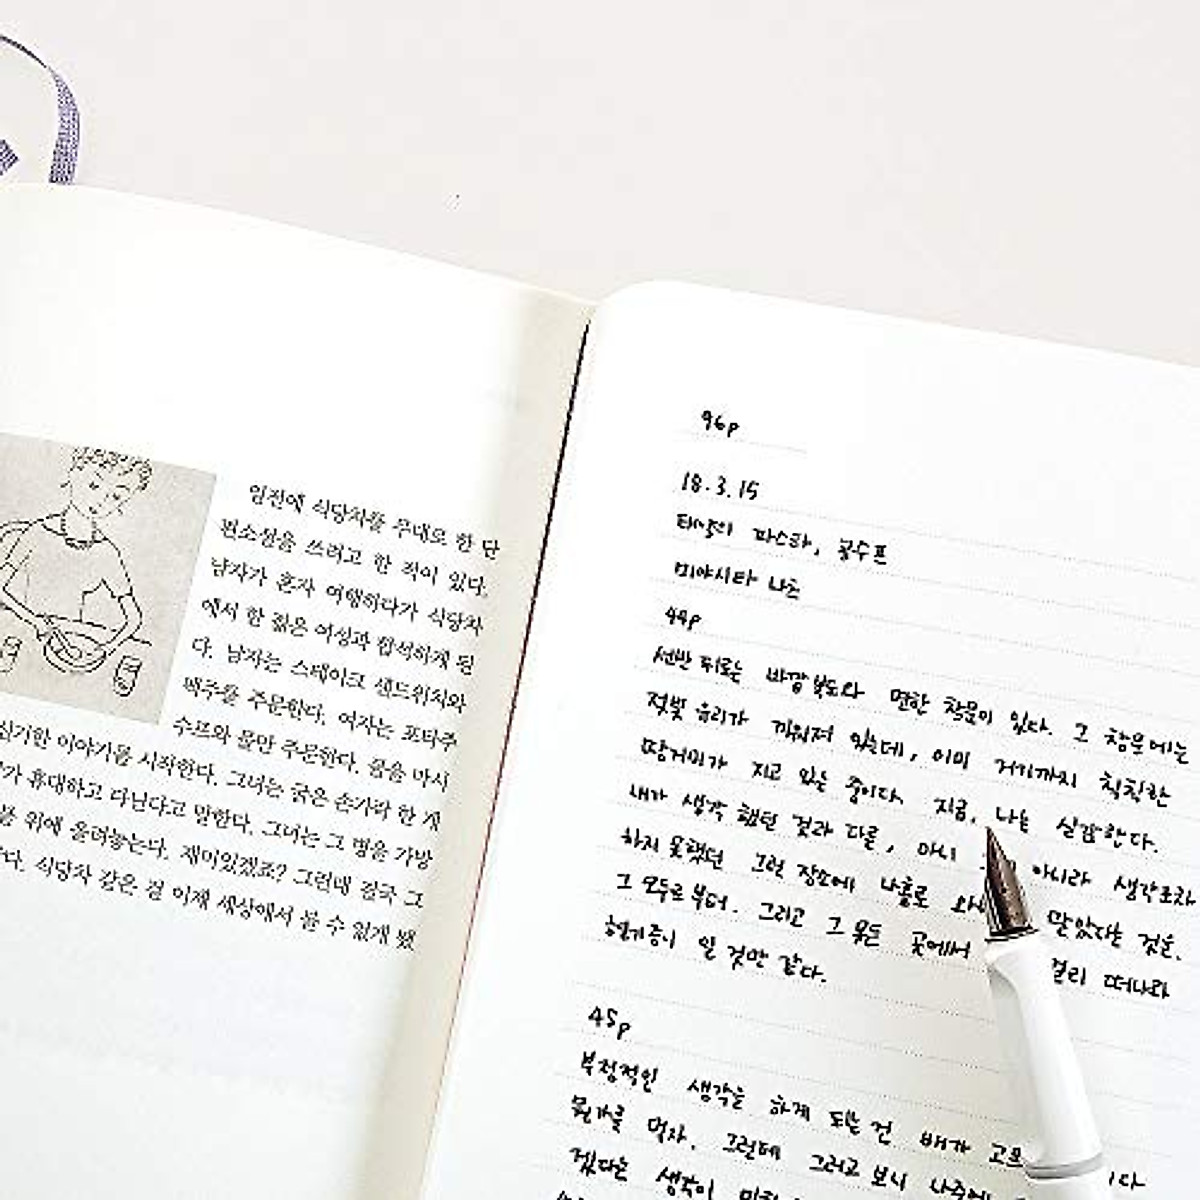 일전에 식당차를 무대로 한 단
편소설을 쓰려고 한 적이 있다.
남자가 혼자 여행하다가 식당차
에서 한 젊은 여성과 합석하게 된
다. 남자는 스테이크 샌드위치와
맥주를 주문한다. 여자는 포타주
수프와 물만 주문한다. 물을 마시
신기한 이야기를 시작한다. 그녀는 굵은 손가락 한 개
가 휴대하고 다닌다고 말한다. 그녀는 그 병을 가방
를 위에 올려놓는다. 재미있겠죠? 그런데 결국 그
다. 식당차 같은 걸 이제 세상에서 볼 수 없게 됐
96p
18.3.15
태양의 파스타, 콩수프
미야시타 나츠
44p
선반 뒤로는 바깥 복도와 면한 창문이 있다. 그 창문에는
젖빛 유리가 끼워져 있는데, 이미 거기까지 칙칙한
땅거미가 지고 있는 중이다. 지금, 나는 실감한다.
내가 생각했던 것과 다른, 아니 아니라 생각조차
하지 못했던 그런 장소에 나홀로 와 말았다는 것을.
그 모두로부터. 그리고 그 모든 곳에서 멀리 떠나와
현기증이 일 것만 같다.
45p
부정적인 생각을 하게 되는 건 배가 고프 이다
뭔가를 먹자. 그런데 그러고 보니 나중에
겠다는 생각이